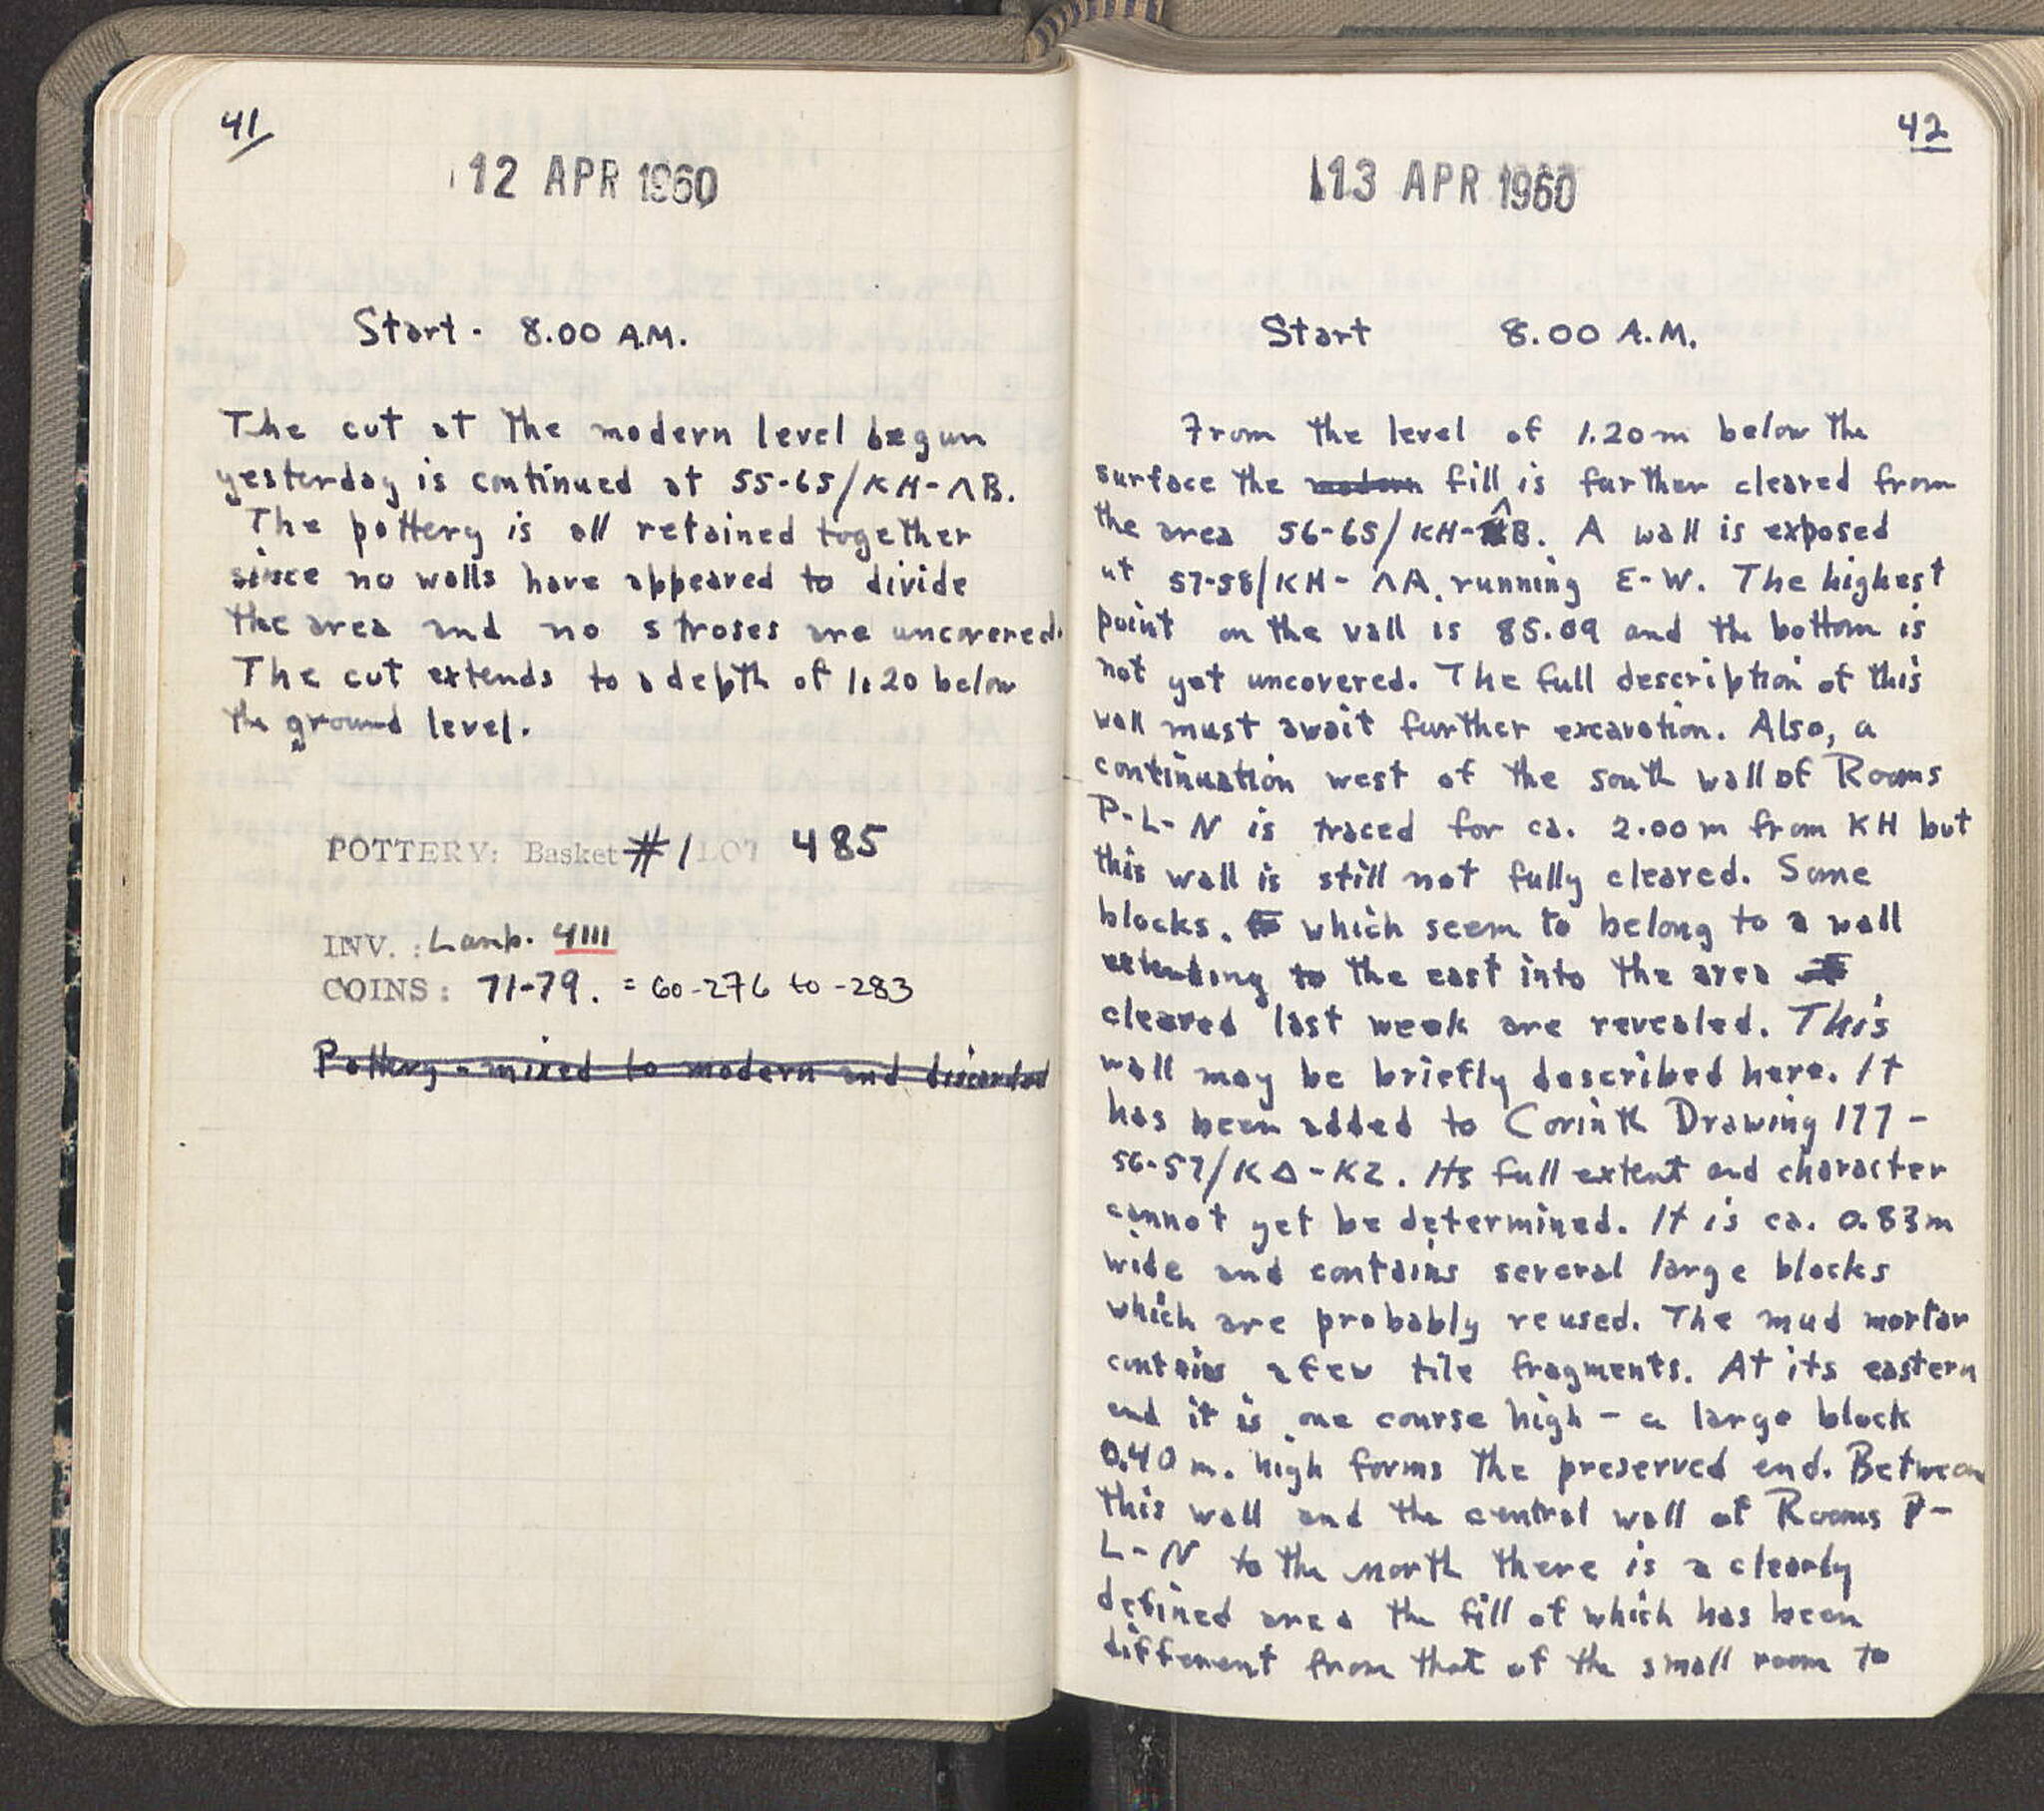 41
12 APR 1960
Start - 8.00 A.M.
The cut at the modern level begun
yesterday is continued at 55-65/KH-ΛB.
The pottery is all retained together
since no walls have appeared to divide
the area and no stroses are uncovered.
The cut extends to a depth of 1.20 below
the ground level.
POTTERY: Basket #1 LOT 485
INV.: Lamp. 4111
COINS: 71-79. = 60-276 to -283
Pottery - mixed to modern and discarded
42
13 APR 1960
Start 8.00 A.M.
From the level of 1.20m below the
surface the modern fill is further cleared from
the area 56-65/KH-ΛB. A wall is exposed
at 57-58/KH-ΛA, running E-W. The highest
point on the wall is 85.09 and the bottom is
not yet uncovered. The full description of this
wall must await further excavation. Also, a
continuation west of the south wall of Rooms
P-L-N is traced for ca. 2.00m from KH but
this wall is still not fully cleared. Some
blocks, which seem to belong to a wall
extending to the east into the area
cleared last week are revealed. This
wall may be briefly described here. It
has been added to Corinth Drawing 177 -
56-57/KΔ-KZ. Its full extent and character
cannot yet be determined. It is ca. 0.83m
wide and contains several large blocks
which are probably reused. The mud mortar
contains a few tile fragments. At its eastern
end it is one course high - a large block
0.40 m. high forms the preserved end. Between
this wall and the central wall of Rooms P-
L-N to the north there is a clearly
defined area the fill of which has been
different from that of the small room to